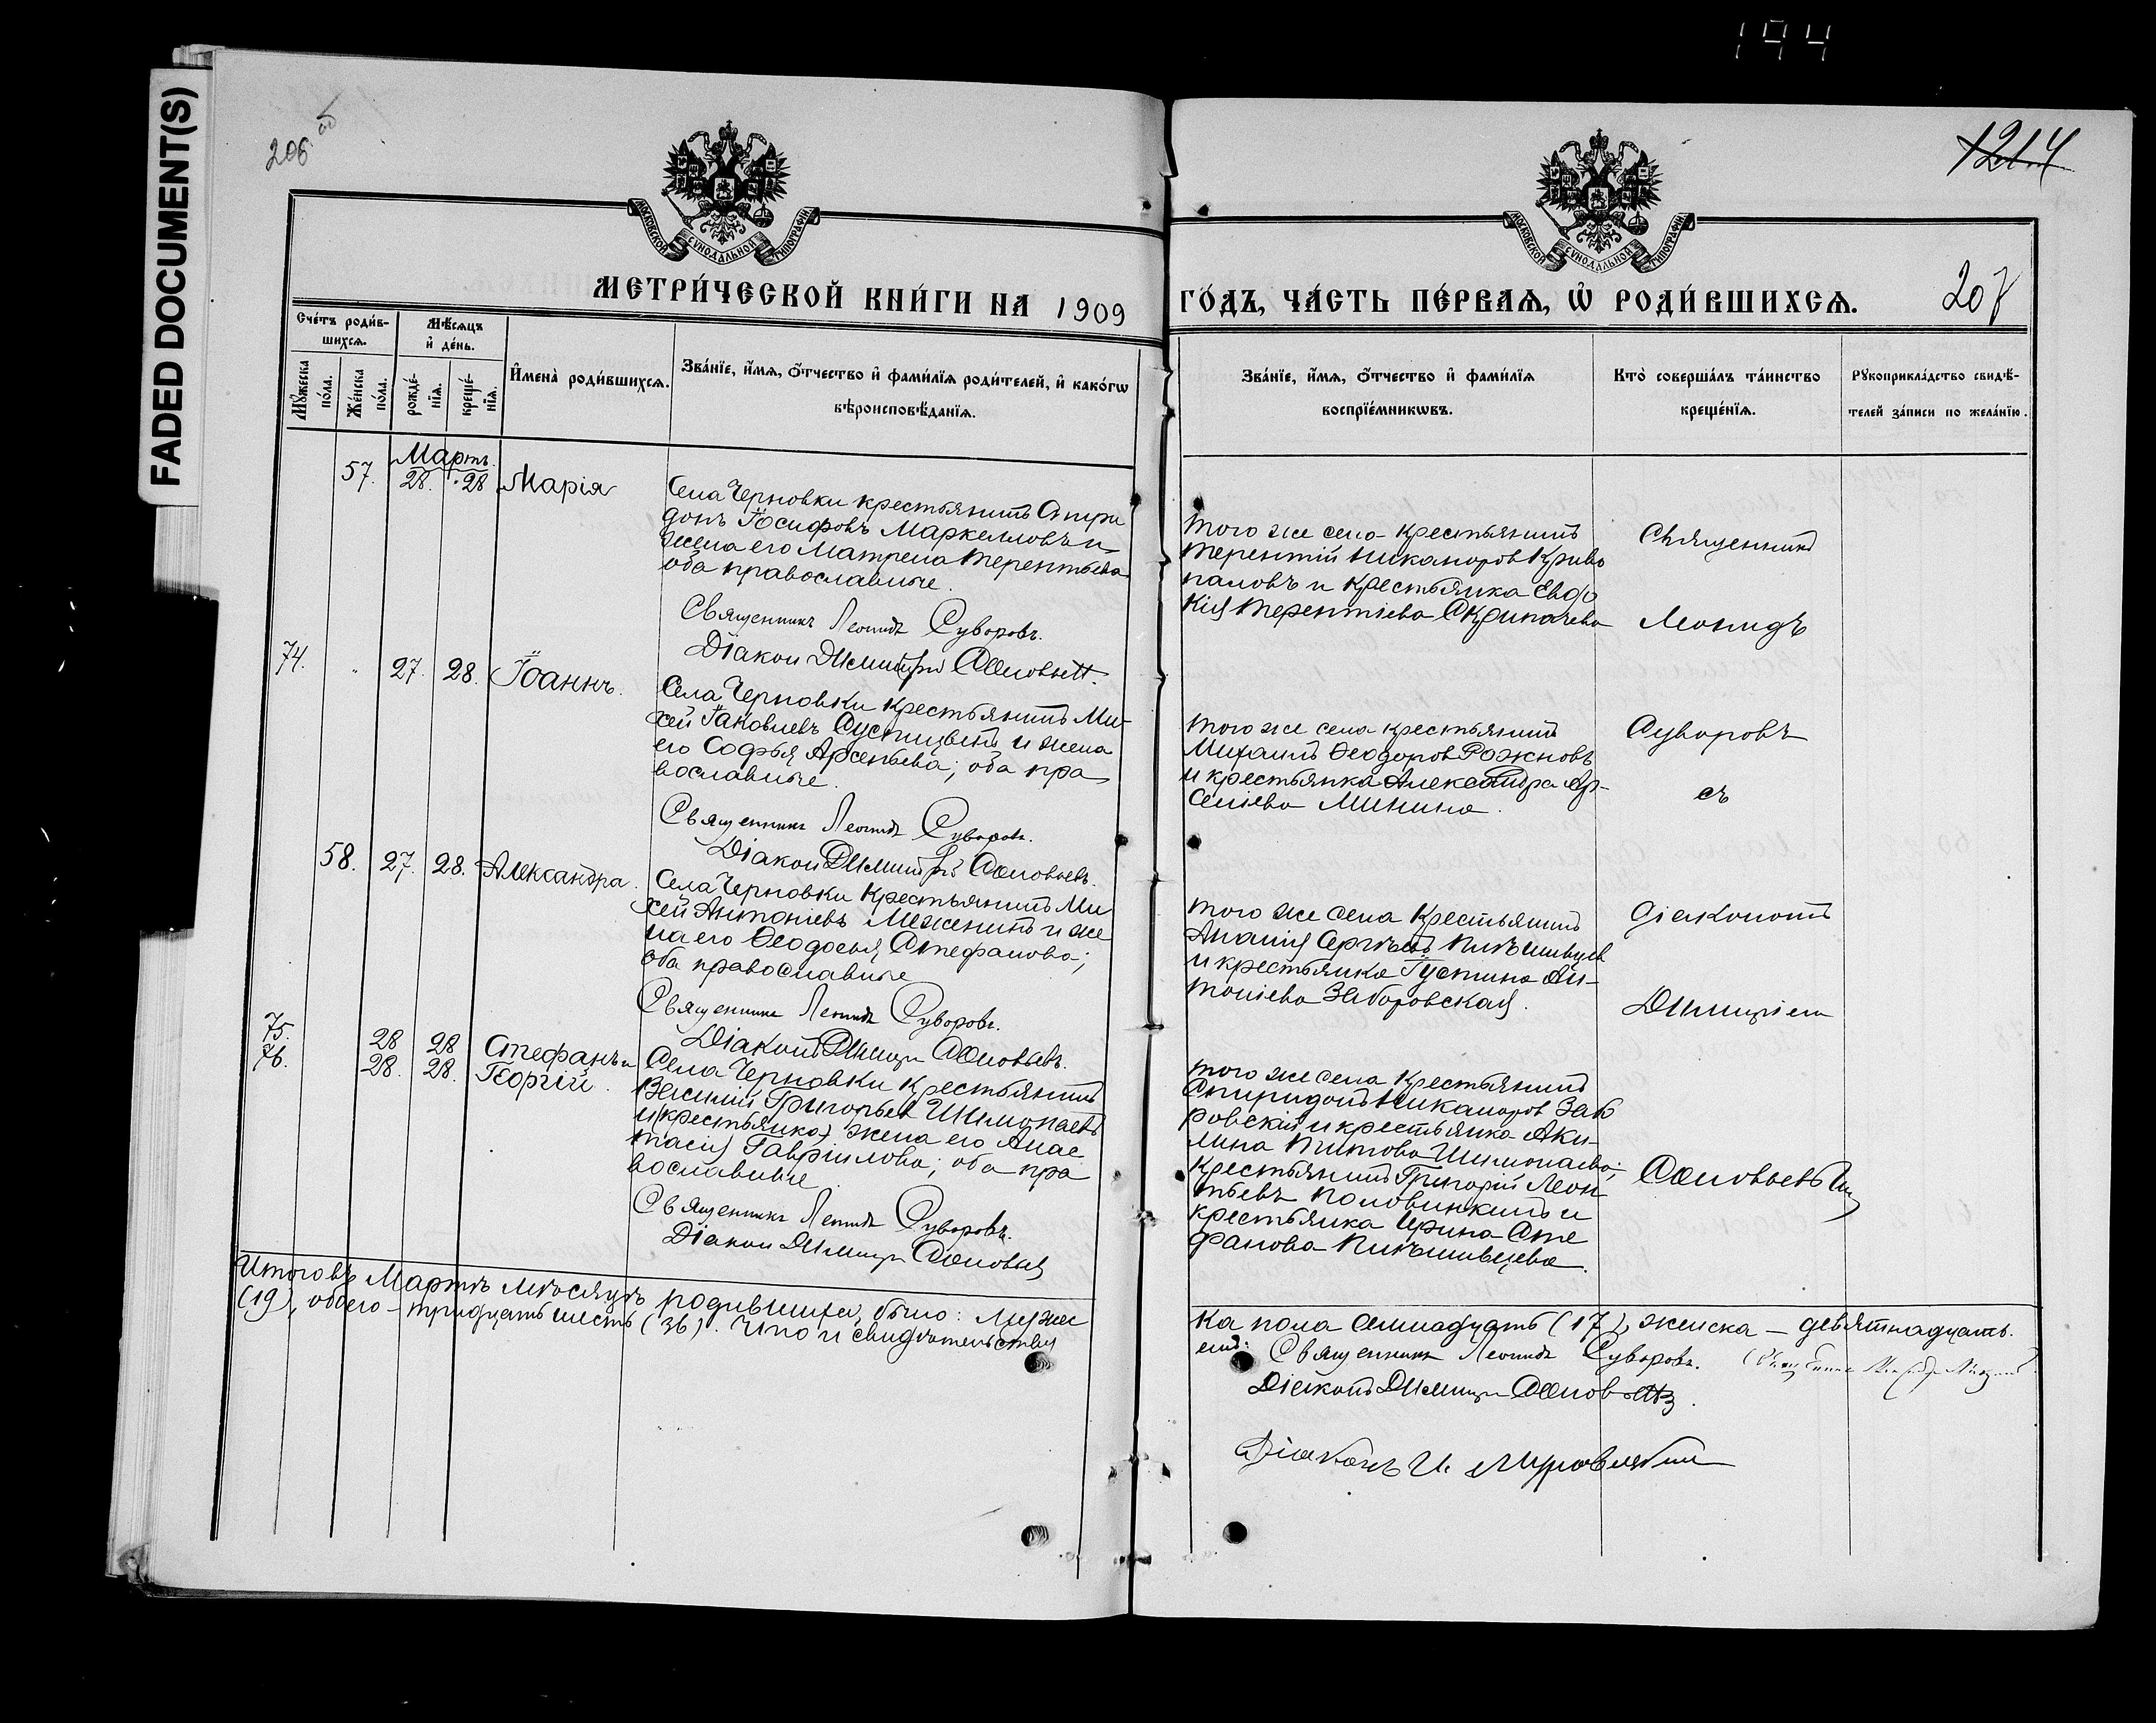 194
FADED DOCUMENT(S)
206 об
1214
207
МОСКОВСКОЙ СѴНОДАЛЬНОЙ ТИПОГРАФІИ
МОСКОВСКОЙ СѴНОДАЛЬНОЙ ТИПОГРАФІИ
МЕТРИ́ЧЕСКОЙ КНИ́ГИ НА 1909 ГО́ДЪ, ЧА́СТЬ ПЕ́РВАѦ, Ѡ҆ РОДИ́ВШИХСѦ.
Сче́тъ роди́в-
шихсѧ.
Мꙋ́жеска по́ла.
Же́нска по́ла.
Мѣ́сѧцъ
и҆ де́нь.
рожде́-
нїѧ.
креще́-
нїѧ.
И҆мена̀ роди́вшихсѧ.
Зва́нїе, и҆́мѧ, ѻ҆́тчество и҆ фами́лїѧ роди́телей, и҆ како́гѡ
вѣроисповѣ́данїѧ.
Зва́нїе, и҆́мѧ, ѻ҆́тчество и҆ фами́лїѧ
воспрїе́мникѡвъ.
Кто̀ соверша́лъ та́инство
креще́нїѧ.
Рꙋкоприкла́дство свидѣ́-
телей за́писи по жела́нїю.
Мартъ.
57. 28. 28 Марія
Села Черновки крестьянинъ Спири
донъ Іосифовъ Маркелловъ и
жена его Матрена Терентьева
оба православные.
Священникъ Леонидъ Суворовъ.
Діаконъ Димитрій Соловьевъ.
того же села крестьянинъ
Терентій Никаноров Криво
паловъ и крестьянка Евдо
кія Терентіева
Священникъ
Леонидъ
74. " 27. 28. Іоаннъ.
Села Черновки крестьянинъ Ми-
хей Іаковлевъ и жена
его Софья Арсеньева; оба пра
вославные.
Священникъ Леонидъ Суворовъ.
Діаконъ Димитрій Соловьевъ.
того же села крестьянинъ
Михаилъ Ѳеодоров Рожновъ
и крестьянка Александра Ар-
сеніева Минина.
Суворовъ
съ
58. 27. 28. Александра.
Села Черновки крестьянинъ Ми
хей Антоніевъ Меженинъ и же
на его Ѳеодосья Стефанова;
оба православные
Священникъ Леонидъ Суворовъ.
Діаконъ Димитрій Соловьевъ.
того же села крестьянинъ
Ананія Сергѣевъ
и крестьянка Іустина Ан-
тоніева Заборовская.
діакономъ
Димитріем
75. 28 28 Стефанъ и
76. 28. 28. Георгій.
Села Черновки крестьянинъ
Василій Григорьев Шимонаевъ
и (крестьянка) жена его Анас
тасія Гавріилова; оба пра
вославные
Священникъ Леонидъ Суворовъ.
Діаконъ Димитрій Соловьев
того же села крестьянинъ
Спиридонъ Никаноров Забо
ровскій и крестьянка Аки-
лина Титова Шимонаева;
крестьянинъ Григорій Леон
тьевъ Половинкинъ и
крестьянка Ирина Сте
фанова
Соловьевым
Итого въ Мартѣ мѣсяцѣ родившихся было: Мужес
ка пола семнадцать (17), женска — девятнадцать
(19), обоего — тридцать шесть (36). Что и свидѣтельствуя
емъ: Священникъ Леонидъ Суворовъ.
Діаконъ Димитрій Соловьевъ.
Діаконъ И.